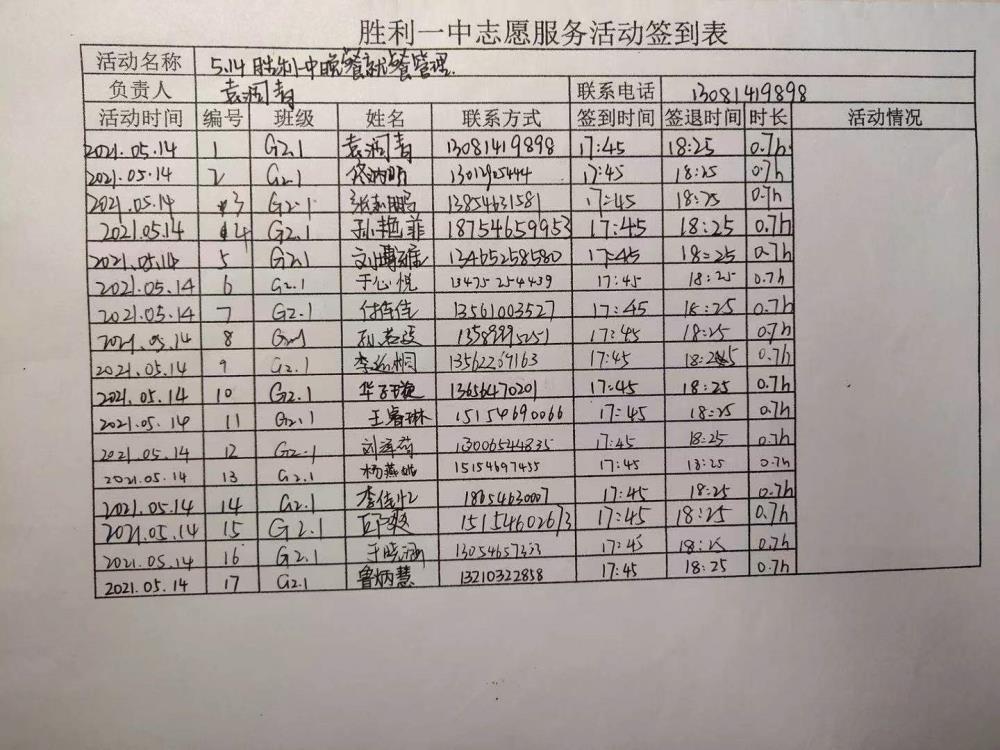 胜利一中志愿服务活动签到表
活动名称 5.14胜利一中晚餐就餐管理.
负责人 袁润青 联系电话 13081419898
活动时间 编号 班级 姓名 联系方式 签到时间 签退时间 时长 活动情况
2021.05.14 1 G2.1 袁润青 13081419898 17:45 18:25 0.7h
2021.05.14 2 G2.1 17:45 18:25 0.7h
2021.05.14 3 G2.1 张志鹏 13854631581 17:45 18:25 0.7h
2021.05.14 4 G2.1 孙艳菲 18754659953 17:45 18:25 0.7h
2021.05.14 5 G2.1 刘博雅 13465258580 17:45 18:25 0.7h
2021.05.14 6 G2.1 于心悦 13475254439 17:45 18:25 0.7h
2021.05.14 7 G2.1 付佳佳 13561003527 17:45 18:25 0.7h
2021.05.14 8 G2.1 17:45 18:25 0.7h
2021.05.14 9 G2.1 13562269163 17:45 18:25 0.7h
2021.05.14 10 G2.1 华子璇 13656470201 17:45 18:25 0.7h
2021.05.14 11 G2.1 王睿琳 15154690066 17:45 18:25 0.7h
2021.05.14 12 G2.1 13006544835 17:45 18:25 0.7h
2021.05.14 13 G2.1 15154697455 17:45 18:25 0.7h
2021.05.14 14 G2.1 李佳忆 18654630007 17:45 18:25 0.7h
2021.05.14 15 G2.1 邱爽 15154602673 17:45 18:25 0.7h
2021.05.14 16 G2.1 于晓涵 17:45 18:25 0.7h
2021.05.14 17 G2.1 鲁炳慧 13210322858 17:45 18:25 0.7h